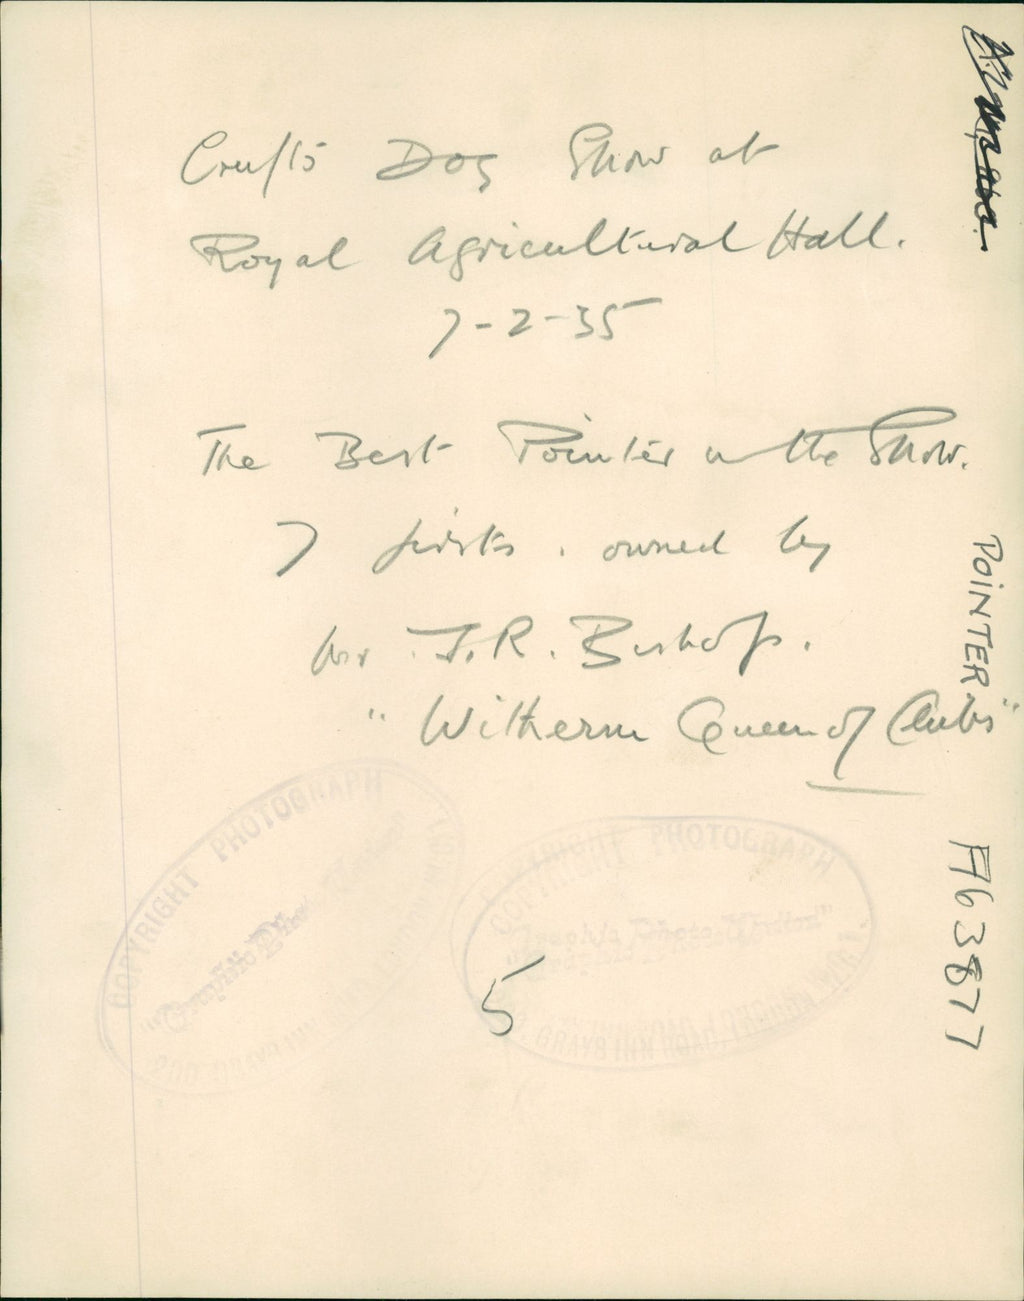 Crufts Dog Show at
Royal Agricultural Hall.
7-2-35
The Best Pointer in the Show.
7 firsts. owned by
Mr. J. R. Bishop.
"Witherm Queen of Clubs"
POINTER
A63877
COPYRIGHT PHOTOGRAPH
"Graphic Photo Union"
COPYRIGHT PHOTOGRAPH
"Graphic Photo Union"
GRAYS INN ROAD, LONDON
5